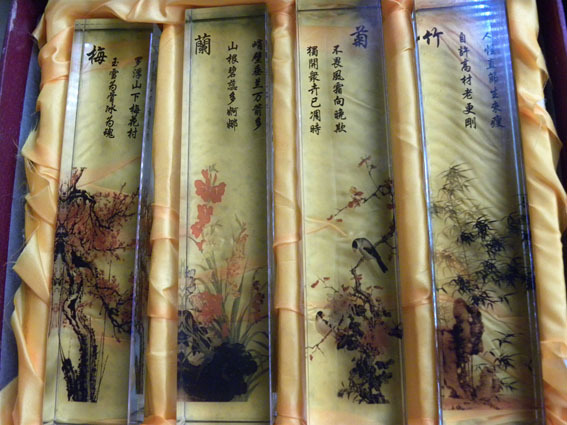 梅
罗浮山下梅花村
玉雪为骨冰为魂
蘭
峭壁垂兰万箭多
山根碧蕊多婀娜
菊
不畏風霜向晚欺
獨開衆卉已凋時
竹
人怜直節生来瘦
自許高材老更剛